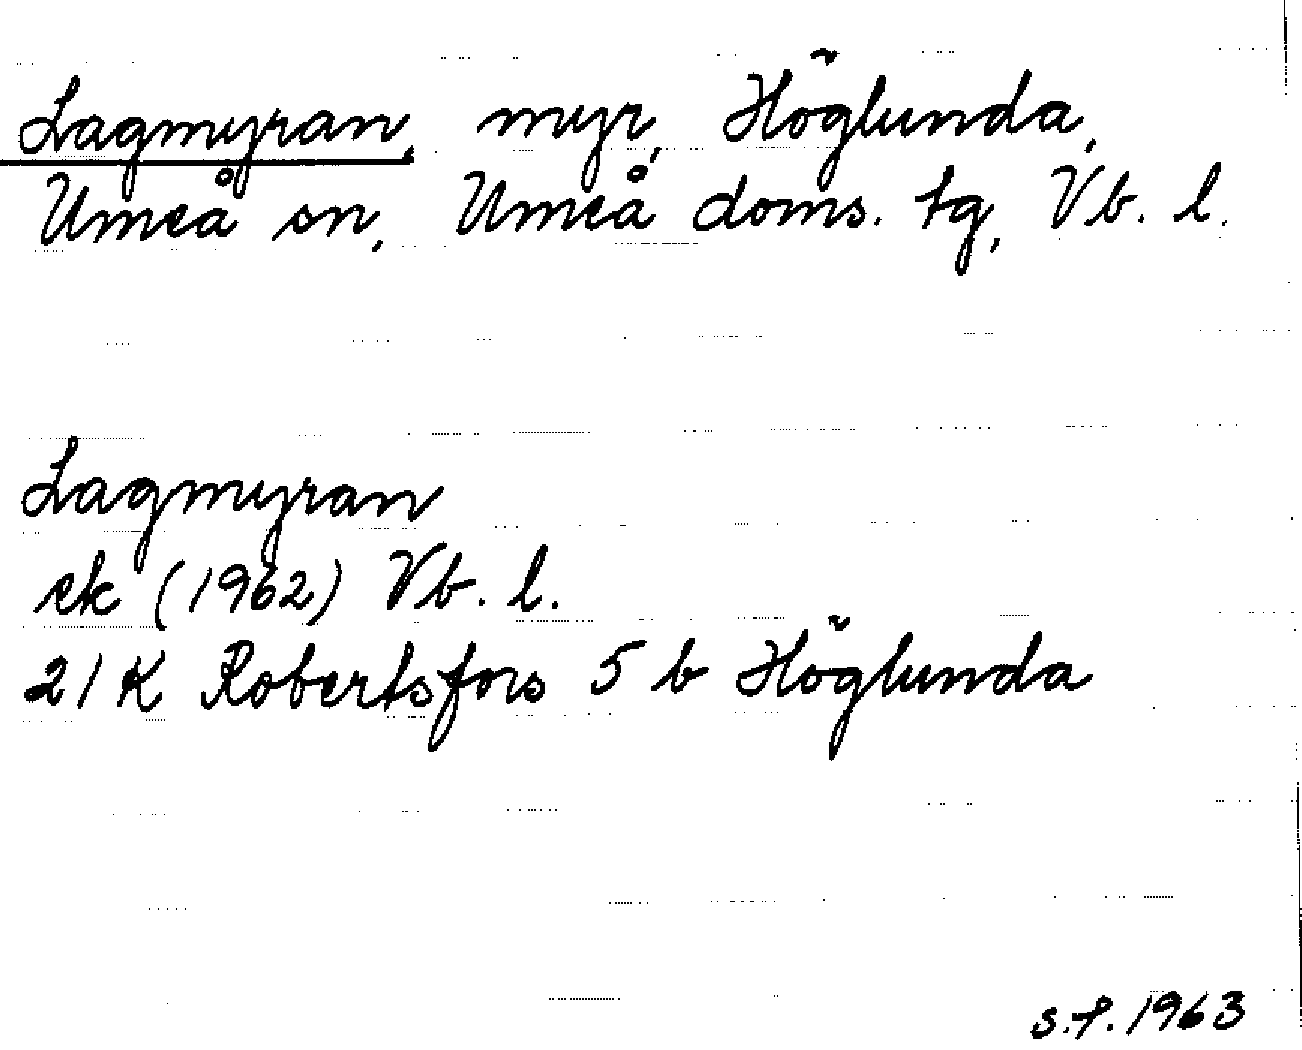 Lagmyran, myr, Höglunda,
Umeå sn, Umeå doms. tg, Vb. l.
Lagmyran
ek (1962) Vb. l.
21 K Robertsfors 5 b Höglunda
s.f. 1963